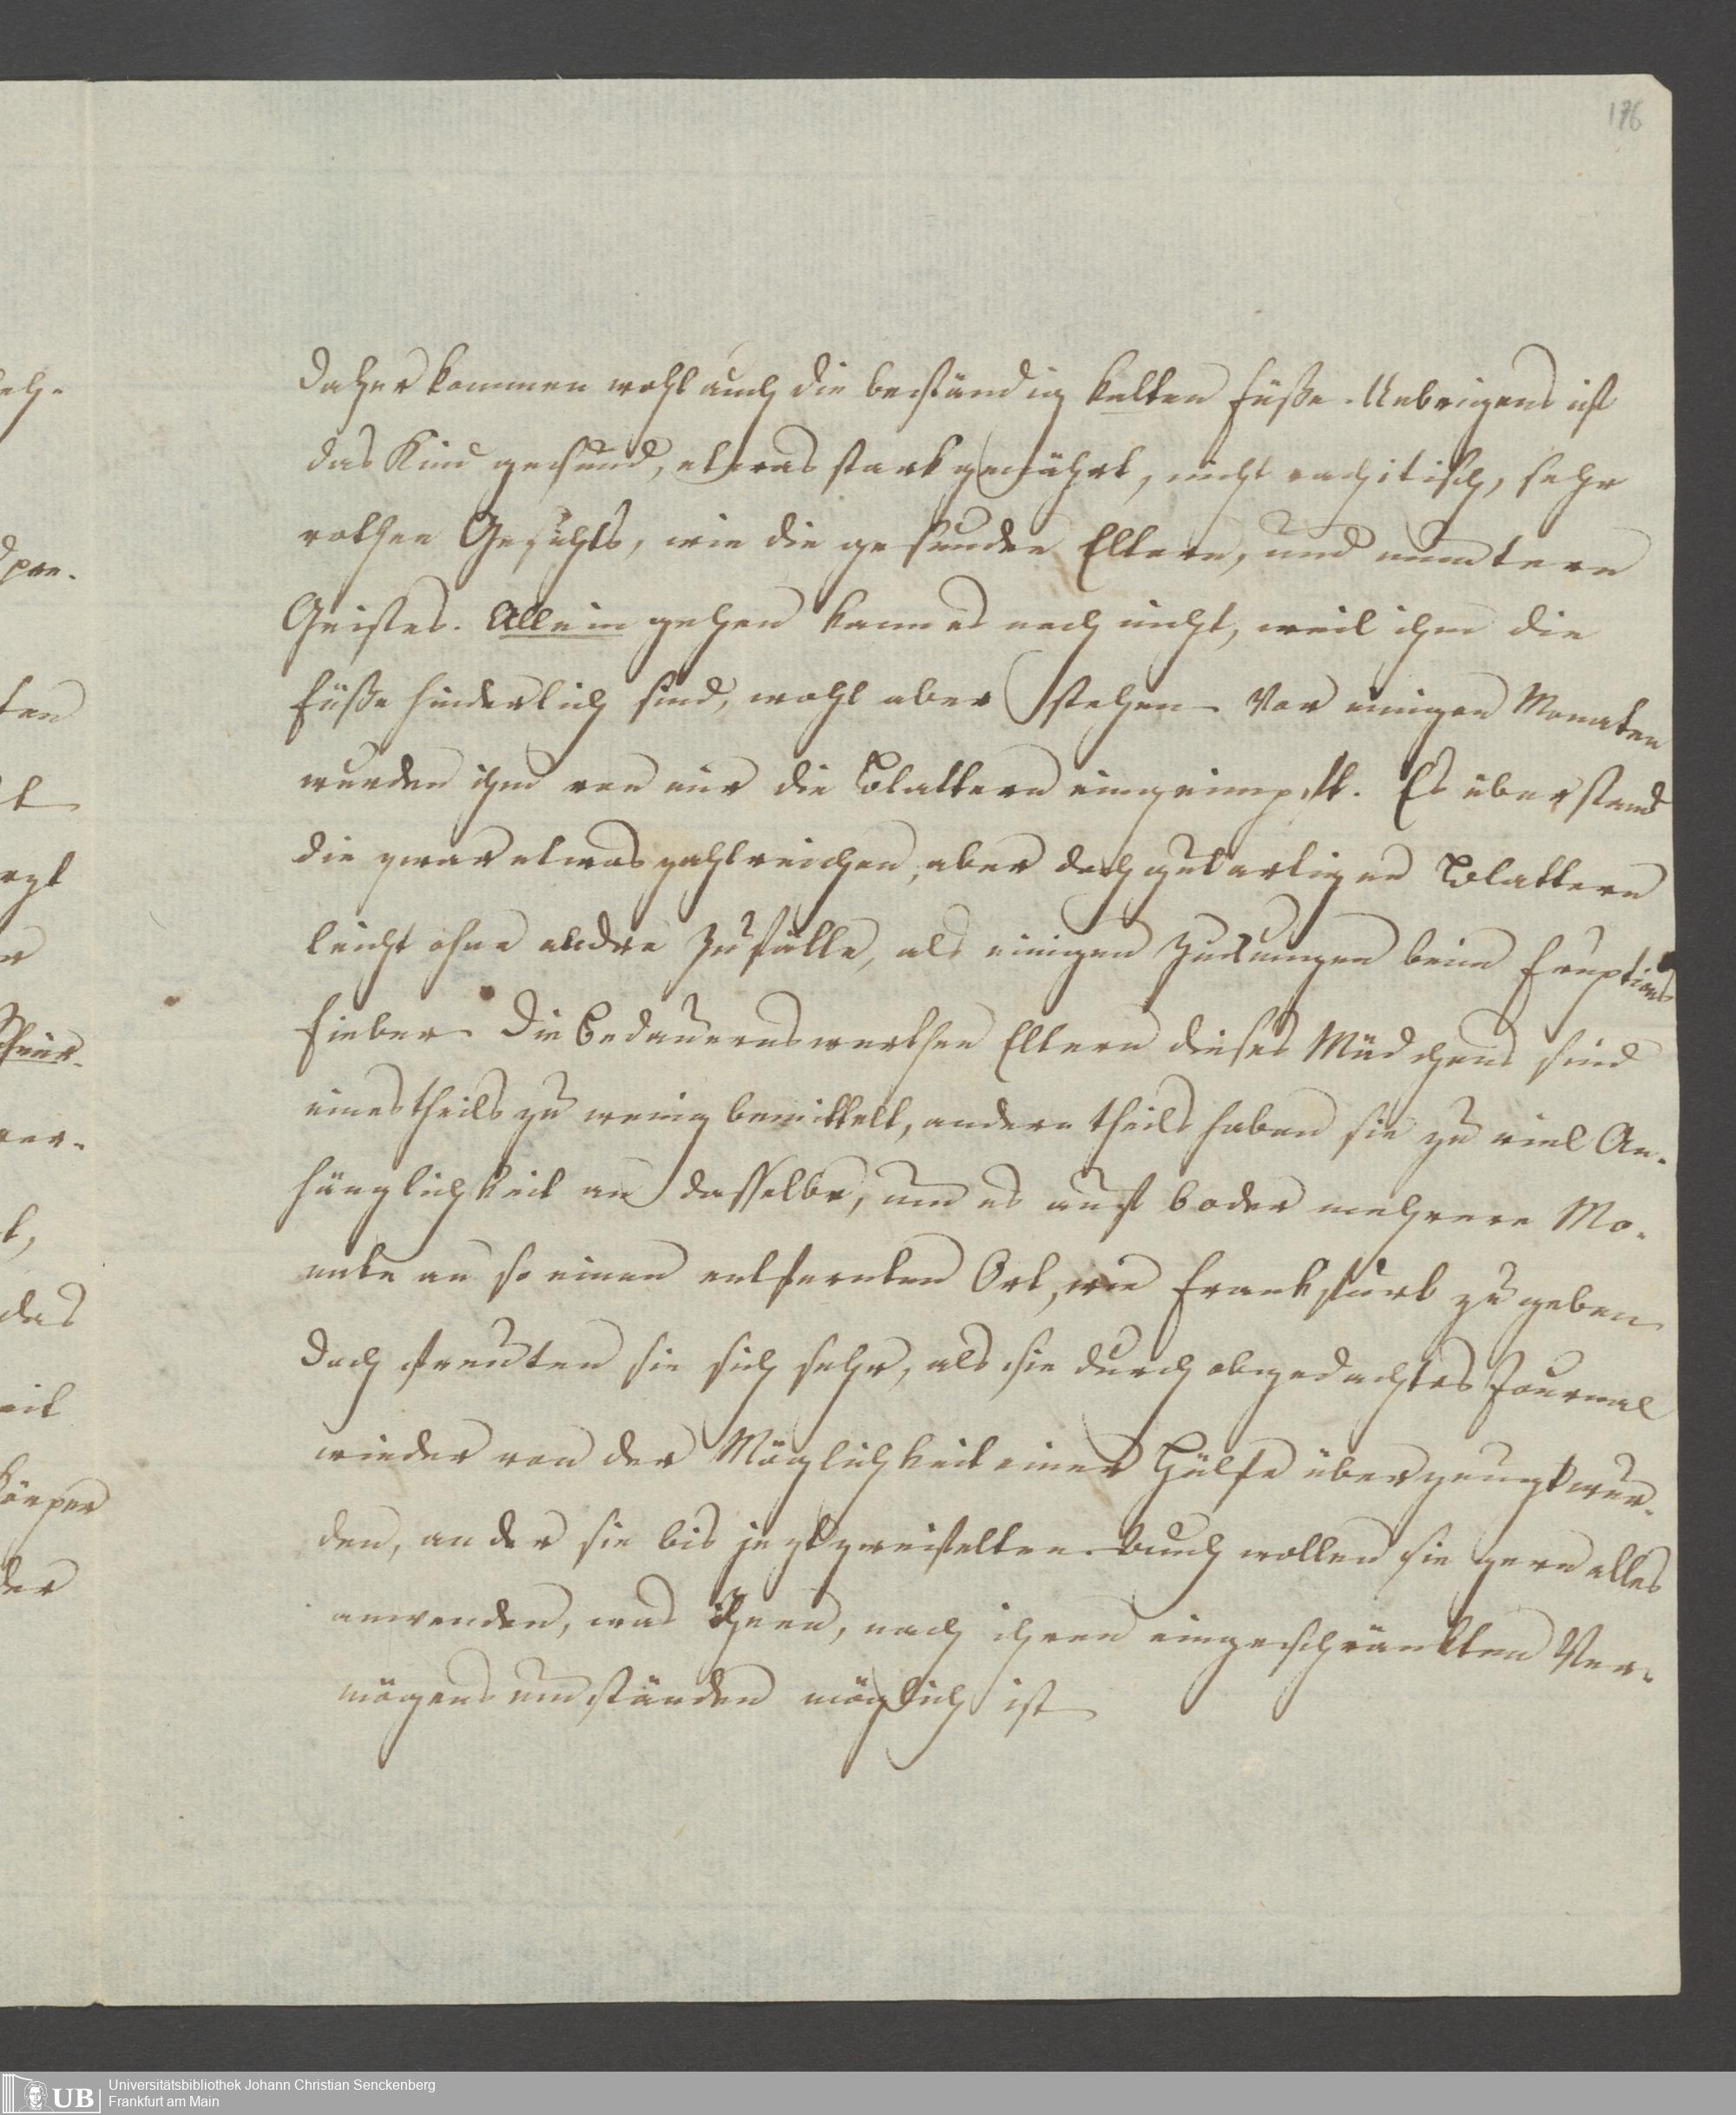 176
Daher kommen wohl auch die beständig kalten Füße. Uebrigens ist
das Kind gesund, etwas stark genährt, nicht rachitisch, sehr
rothen Gesichts, wie die gesunden Eltern, und muntern
Geistes. Allein gehen kann es noch nicht, weil ihm die
Füße hinderlich sind, wohl aber stehen. Vor einigen Monaten
wurden ihm von mir die Blattern eingeimpft. Es überstand
die zwar etwas zahlreichen, aber doch gutartigen Blattern
leicht ohne andre Zufälle, als einigen Zuckungen beim Eruptions
Fieber. Die Bedauernswerthen Eltern dieses Mädchens sind
eines theils zu wenig bemittelt, andern theils haben sie zu viel An-
hänglichkeit an dasselbe, um es auf 6 oder mehrere Mo-
nate an so einen entfernten Ort, wie Frankfurt zu geben
Doch freuten sie sich sehr, als sie durch obgedachtes Journal
wieder von der Möglichkeit einer Hülfe überzeugt wur-
den, an der sie bis jezt zweifelten. Auch wollen sie gern alles
anwenden, was ihnen, nach ihren eingeschränkten Ver-
mögensumständen möglich ist
ten
das
Körper
der
UB
Universitätsbibliothek Johann Christian Senckenberg
Frankfurt am Main